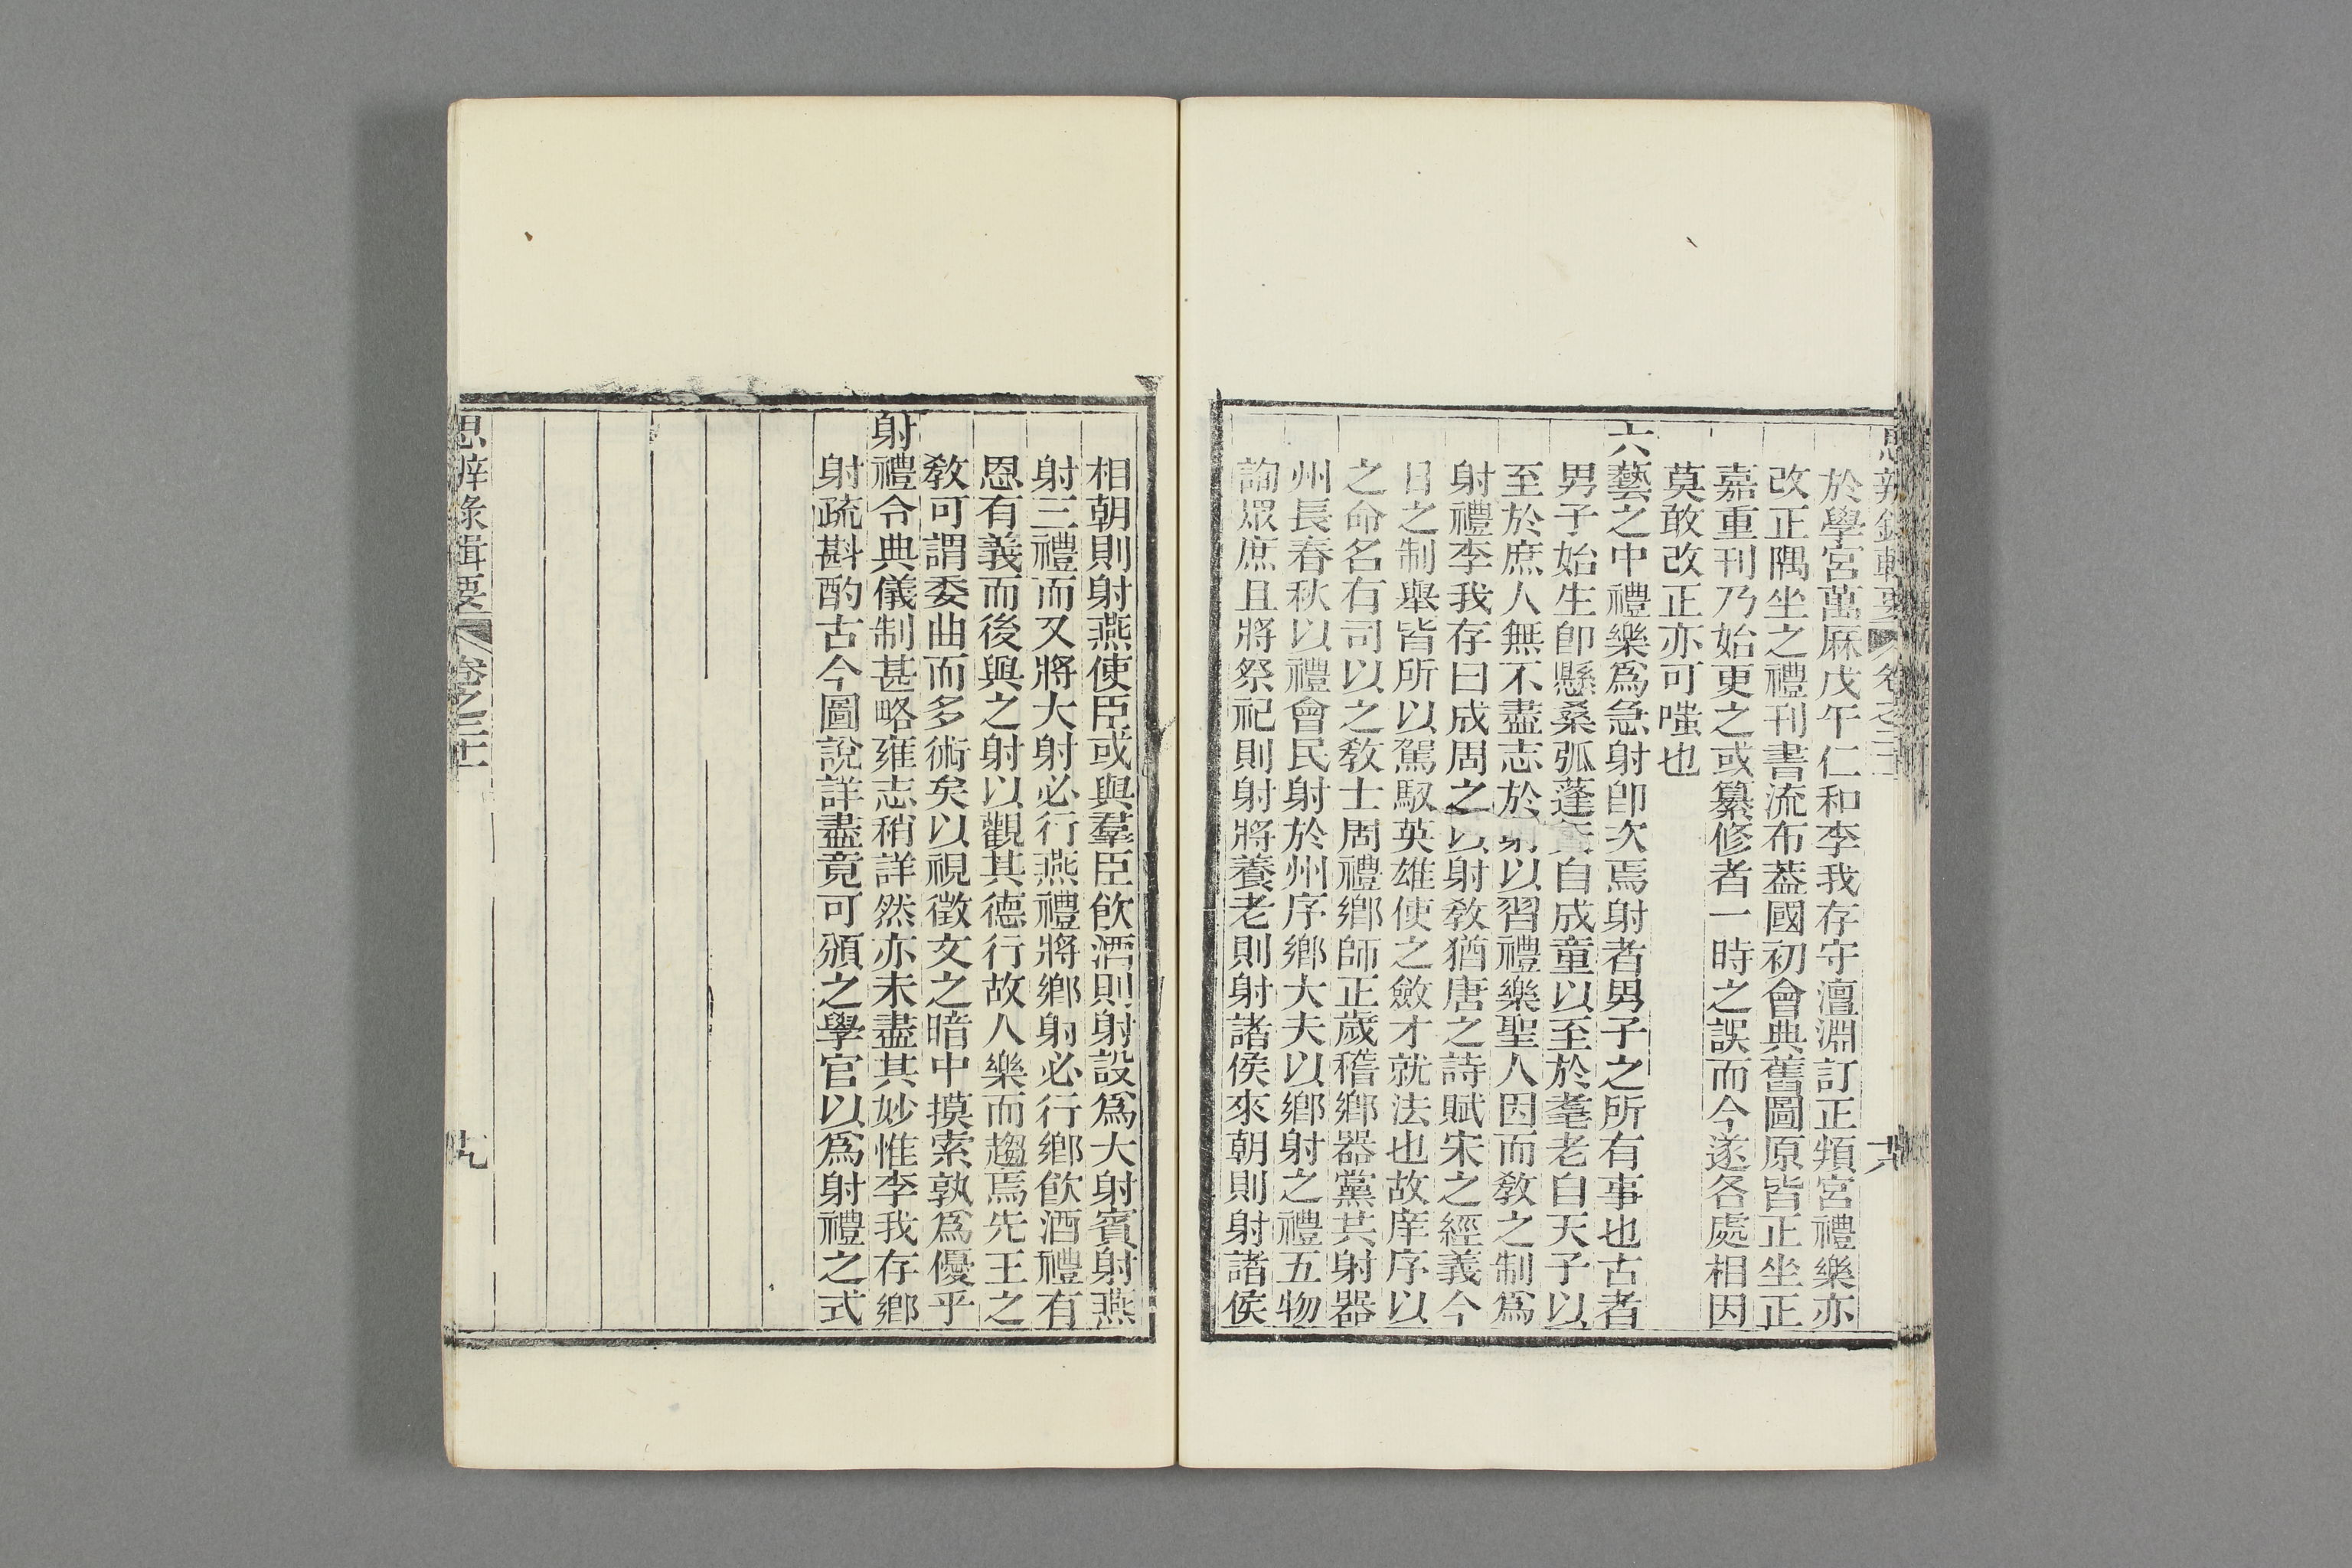 於學宮萬厤戊午仁和李我存守澶淵訂正頖宮禮樂亦
改正隅坐之禮刊書流布葢國初會典舊圖原皆正坐正
嘉重刊乃始更之或纂修者一時之誤而今遂各處相因
莫敢改正亦可嗤也
六藝之中禮樂爲急射卽次焉射者男子之所有事也古者
男子始生卽懸桑弧蓬矢自成童以至於耄老自天子以
至於庶人無不盡志於射以習禮樂聖人因而敎之制爲
射禮李我存曰成周之以射敎猶唐之詩賦宋之經義今
日之制舉皆所以駕馭英雄使之斂才就法也故庠序以
之命名有司以之敎士周禮鄕師正歲稽鄕器黨共射器
州長春秋以禮會民射於州序鄕大夫以鄕射之禮五物
詢眾庶且將祭祀則射將養老則射諸侯來朝則射諸侯
相朝則射燕使臣或與羣臣飮酒則射設爲大射賓射燕
射三禮而又將大射必行燕禮將鄕射必行鄕飮酒禮有
恩有義而後與之射以觀其德行故人樂而趨焉先王之
敎可謂委曲而多術矣以視徵文之暗中摸索孰爲優乎
射禮令典儀制甚略雍志稍詳然亦未盡其妙惟李我存鄕
射疏斟酌古今圖說詳盡竟可頒之學官以爲射禮之式
思辨錄輯要 卷之二十